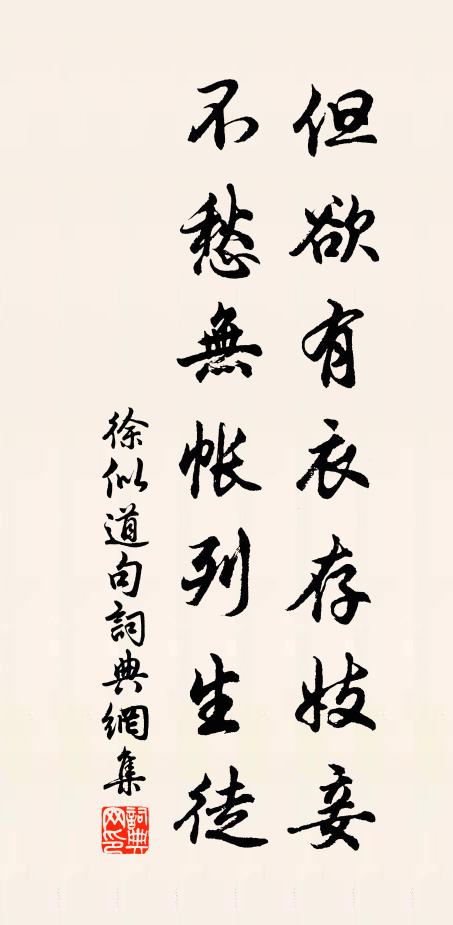 但欲有衣存妓妾
不愁無帐列生徒
徐似道句詞典網集
詞典网印